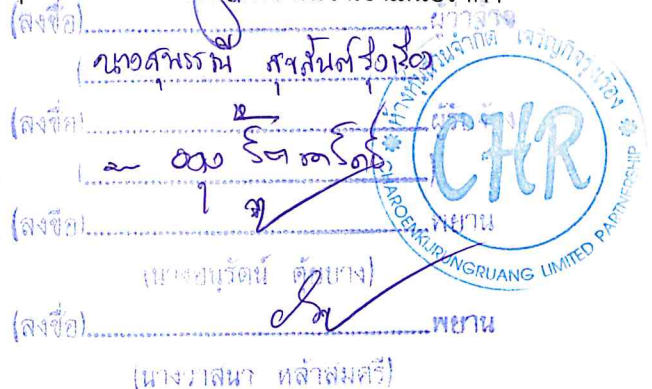 (ลงชื่อ)..........ผู้ว่าจ้าง
(นางสุพรรณี สุขสันต์รุ่งเรือง
(ลงชื่อ)..........ผู้รับจ้าง
(ลงชื่อ)..........พยาน
(นางอนุรัตน์
(ลงชื่อ)..........พยาน
(นางวาสนา หล้าสมศรี)
ห้างหุ้นส่วนจำกัด เจริญกิจรุ่งเรือง
CHR
CHAROENKIJRUNGRUANG LIMITED PARTNERSHIP